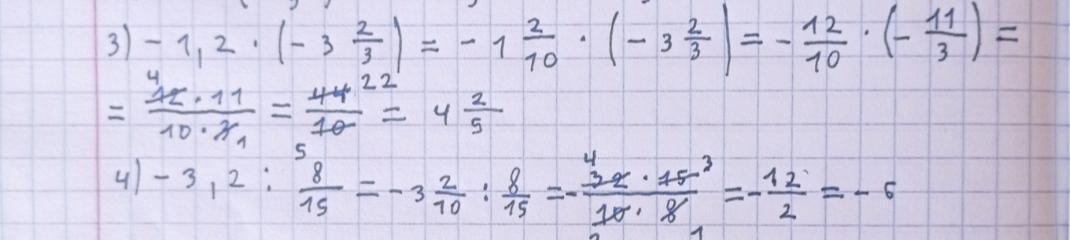 3) - 1,2 · (- 3 2/3) = - 1 2/10 · (- 3 2/3) = - 12/10 · (- 11/3) =
= 12 4 · 11 / 10 · 3 1 = 44 22 / 10 5 = 4 2/5
4) - 3,2 : 8/15 = - 3 2/10 : 8/15 = - 32 4 · 15 3 / 10 2 · 8 1 = - 12/2 = - 6